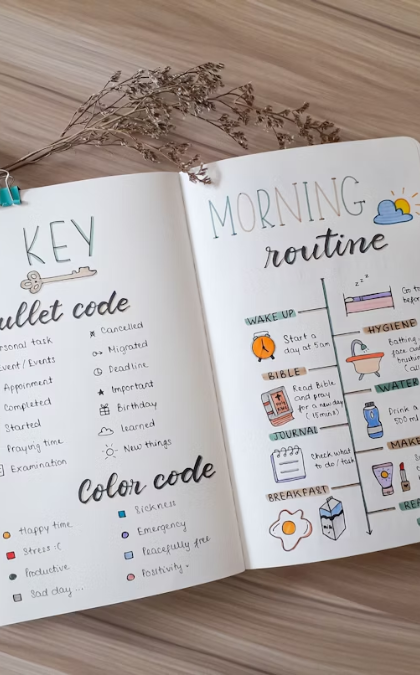 KEY
ullet code
ersonal task
Event / Events
Appoinment
Completed
Started
Praying time
Examination
Cancelled
Migrated
Deadline
Important
Birthday
Learned
New things
Color code
Happy time
Stress :(
Productive
Sad day ...
Sickness
Emergency
Peacefully free
Positivity.
MORNING
routine
WAKE UP
Start a
day at 5am
BIBLE
Read Bible
and pray
for a new day
(15mins)
JOURNAL
Check what
to do / task
BREAKFAST
zzz
Go to
HYGIENE
Bathing
face and
brushing
WATER
Drink a
500 ml
MAKE